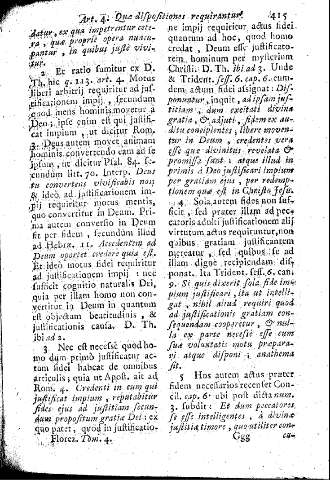 Art. 4. Quæ dispositiones requirantur. 415
datur, ex qua impetrentur cete-
ra, quæ proprie opera nuncu-
pantur, in quibus juste vivi-
tur.
2 Et ratio sumitur ex D.
Th. hic q. 113. art. 4. Motus
liberi arbitrii requiritur ad jus-
tificationem impii, secundum
quod mens hominis movetur a
Deo: ipse enim est qui justifi-
cat impium, ut dicitur Rom.
Deus autem movet animam
hominis convertendo eam ad se
ipsum, ut dicitur Psal. 84. se-
cundum 70. Interp. Deus
tu convertens vivificabis nos;
& ideo ad justificationem im-
pii requiritur motus mentis,
quo convertitur in Deum. Pri-
ma autem conversio in Deum
fit per fidem, secundum illud
ad Hebræ. 11. Accedentem ad
Deum oportet credere quia est.
Et ideo motus fidei requiritur
ad justificationem impii; nec
sufficit cognitio naturalis Dei,
quia per illam homo non con-
vertitur in Deum in quantum
est objectum beatitudinis, &
justificationis causa. D. Th.
ibi ad 2.
3 Nec est necesse quod ho-
mo dum primò justificatur ac-
tum fidei habeat de omnibus
articulis; quia ut Apost. ait ad
Rom. 4. Credenti in eum qui
justificat impium, reputabitur
fides ejus ad justitiam secun-
dum propositum gratiæ Dei: ex
quo patet, quod in justificatio-
Florez. Tom. 4.
ne impij requiritur actus fidei
quantum ad hoc, quod homo
credat, Deum esse justificato-
rem hominum per mysterium
Christi. D. Th. ibi ad 3. Unde
& Trident. sess. 6. cap. 6. eum-
dem actum fidei assignat: Dis-
ponuntur, inquit, ad ipsam jus-
titiam, dum excitati divina
gratia, & adjuti, fidem ex au-
ditu concipientes, libere moven-
tur in Deum, credentes vera
esse quæ divinitus revelata &
promissa sunt: atque illud in
primis à Deo justificari impium
per gratiam ejus, per redemp-
tionem quæ est in Christo Jesu.
4 Sola autem fides non suf-
ficit, sed præter illam ad pec-
catoris adulti justificationem alij
virtutum actus requiruntur, non
quibus gratiam justificantem
mereatur, sed quibus se ad
illam digne recipiendam dis-
ponat. Ita Trident. sess. 6. can.
9. Si quis dixerit sola fide im-
pium justificari, ita ut intelli-
gat, nihil aliud requiri quod
ad justificationis gratiam con-
sequendam cooperetur, & nul-
la ex parte necesse esse eum
suæ voluntatis motu præpara-
ri atque disponi; anathema
sit.
5 Hos autem actus præter
fidem necessarios recenset Con-
cil. cap. 6. ubi post dicta num.
3. subdit: Et dum peccatores
se esse intelligentes, à divinæ
justitiæ timore, quo utiliter con-
Ggg cu-